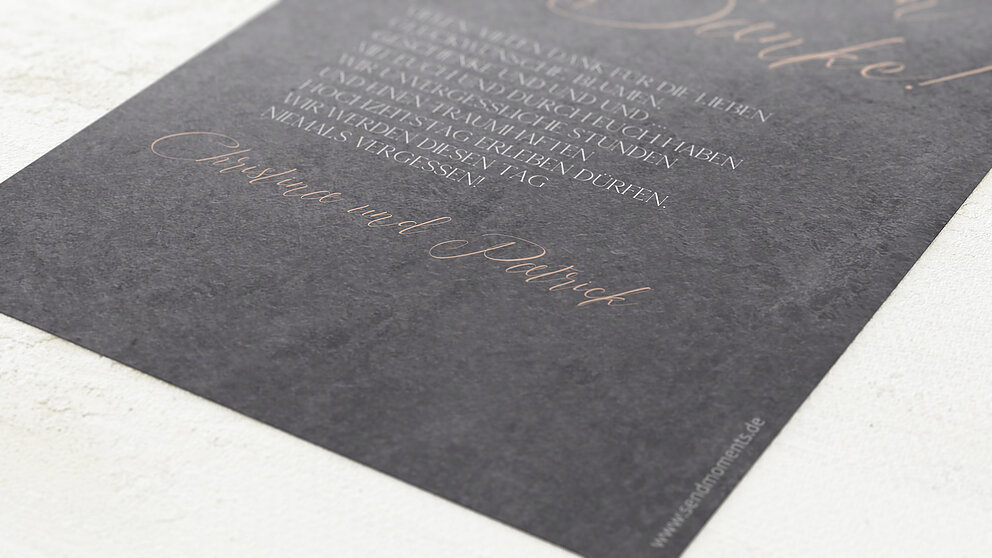 Danke!
VIELEN, VIELEN DANK FÜR DIE LIEBEN
GLÜCKWÜNSCHE, BLUMEN,
GESCHENKE UND UND UND...
MIT EUCH UND DURCH EUCH HABEN
WIR UNVERGESSLICHE STUNDEN
UND EINEN TRAUMHAFTEN
HOCHZEITSTAG ERLEBEN DÜRFEN.
WIR WERDEN DIESEN TAG
NIEMALS VERGESSEN!
Christina und Patrick
www.sendmoments.de